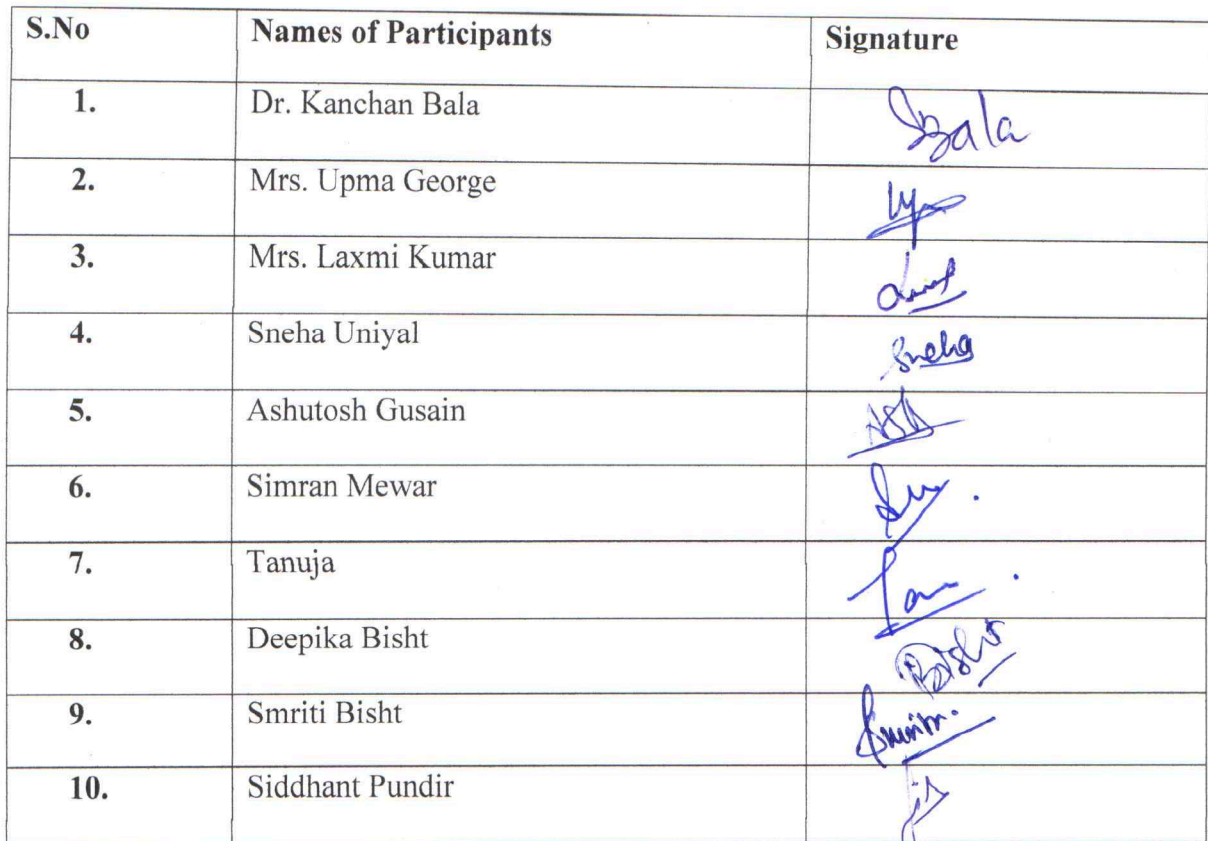 S.No Names of Participants Signature
1. Dr. Kanchan Bala Bala
2. Mrs. Upma George
3. Mrs. Laxmi Kumar
4. Sneha Uniyal Sneha
5. Ashutosh Gusain
6. Simran Mewar
7. Tanuja
8. Deepika Bisht Bisht
9. Smriti Bisht
10. Siddhant Pundir